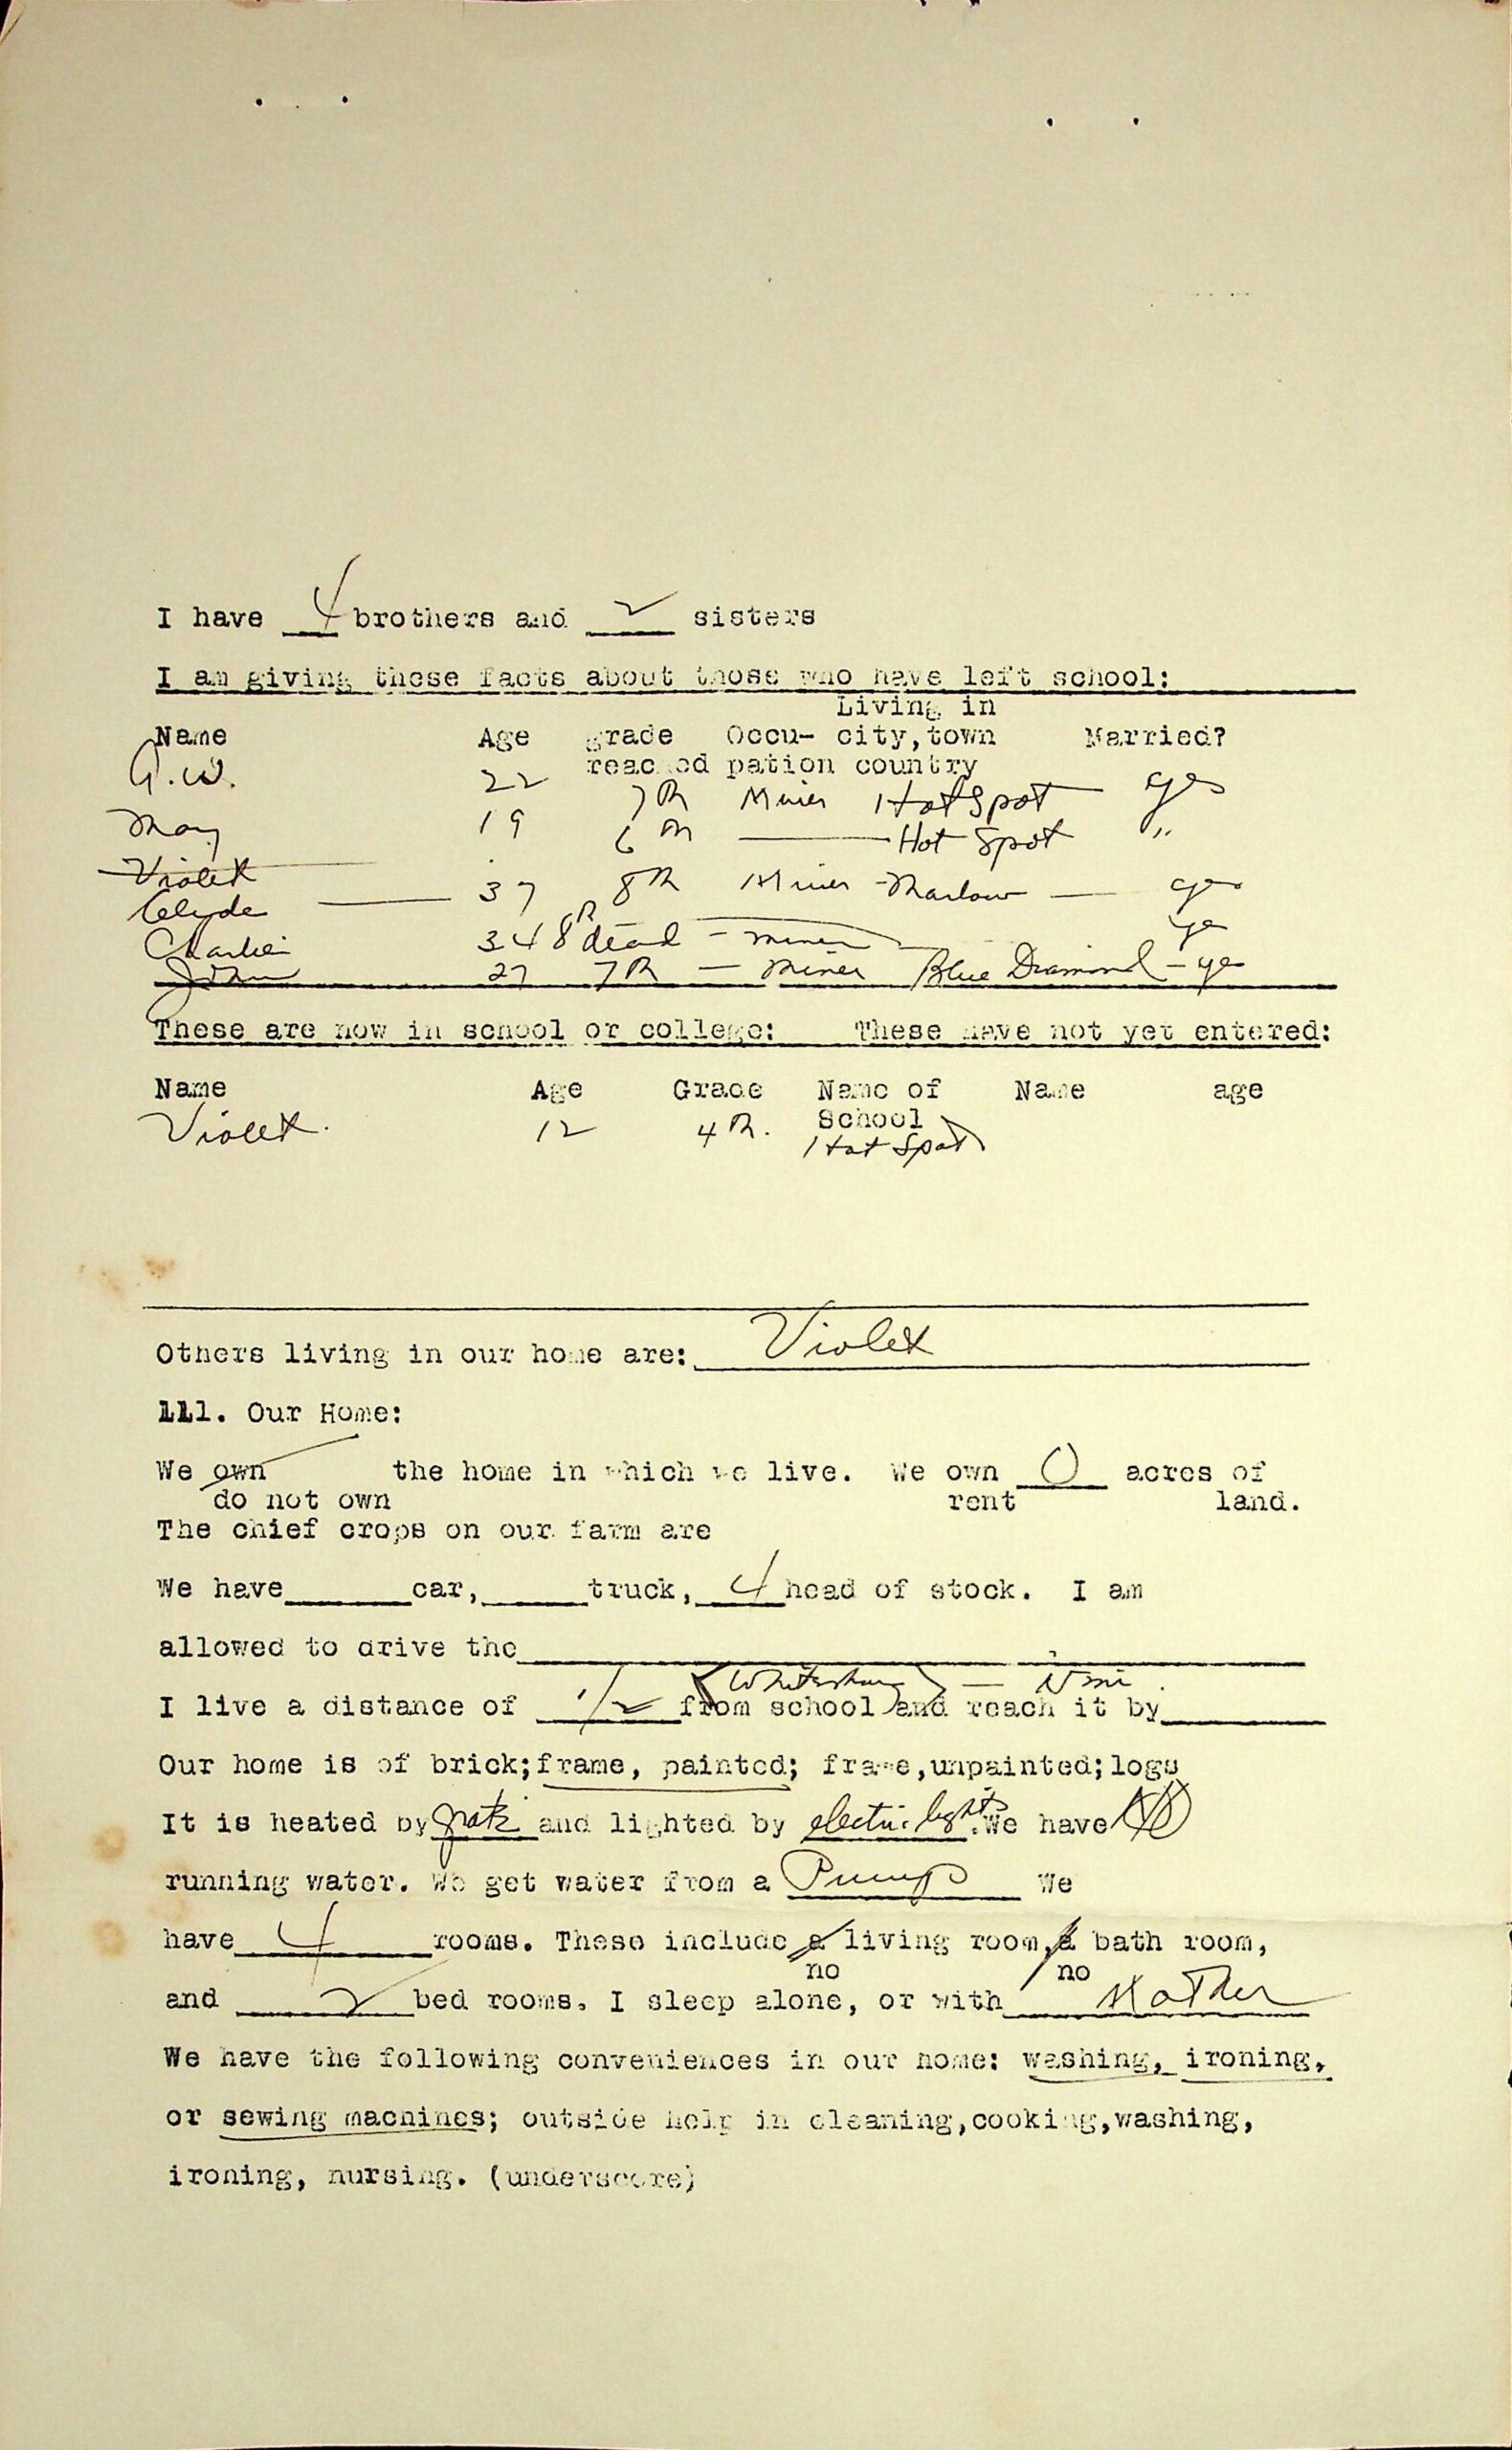 I have 4 brothers and 2 sisters
I am giving these facts about those who have left school:
Living in
Name Age grade Occu- city, town Married?
reached pation country
G.W. 22 7th Miner Hot Spot yes
May 19 6th Hot Spot "
Violet
Clyde 37 8th Miner - Marlow yes
Charlie 34 8th dead - miner yes
John 27 7th - miner Blue Diamond - yes
These are now in school or college: These have not yet entered:
Name Age Grade Name of Name age
School
Violet. 12 4th. Hot Spot
Others living in our home are: Violet
111. Our Home:
We own the home in which we live. We own 0 acres of
do not own rent land.
The chief crops on our farm are
We have car, truck, 4 head of stock. I am
allowed to drive the
(Whitesburg) - mi.
I live a distance of 1/2 from school and reach it by
Our home is of brick; frame, painted; frame, unpainted; logs
It is heated by grate and lighted by electric lights. We have
running water. We get water from a Pump We
have 4 rooms. These include a living room, a bath room,
no no
and 2 bed rooms. I sleep alone, or with Mother
We have the following conveniences in our home: washing, ironing,
or sewing machines; outside help in cleaning, cooking, washing,
ironing, nursing. (underscore)